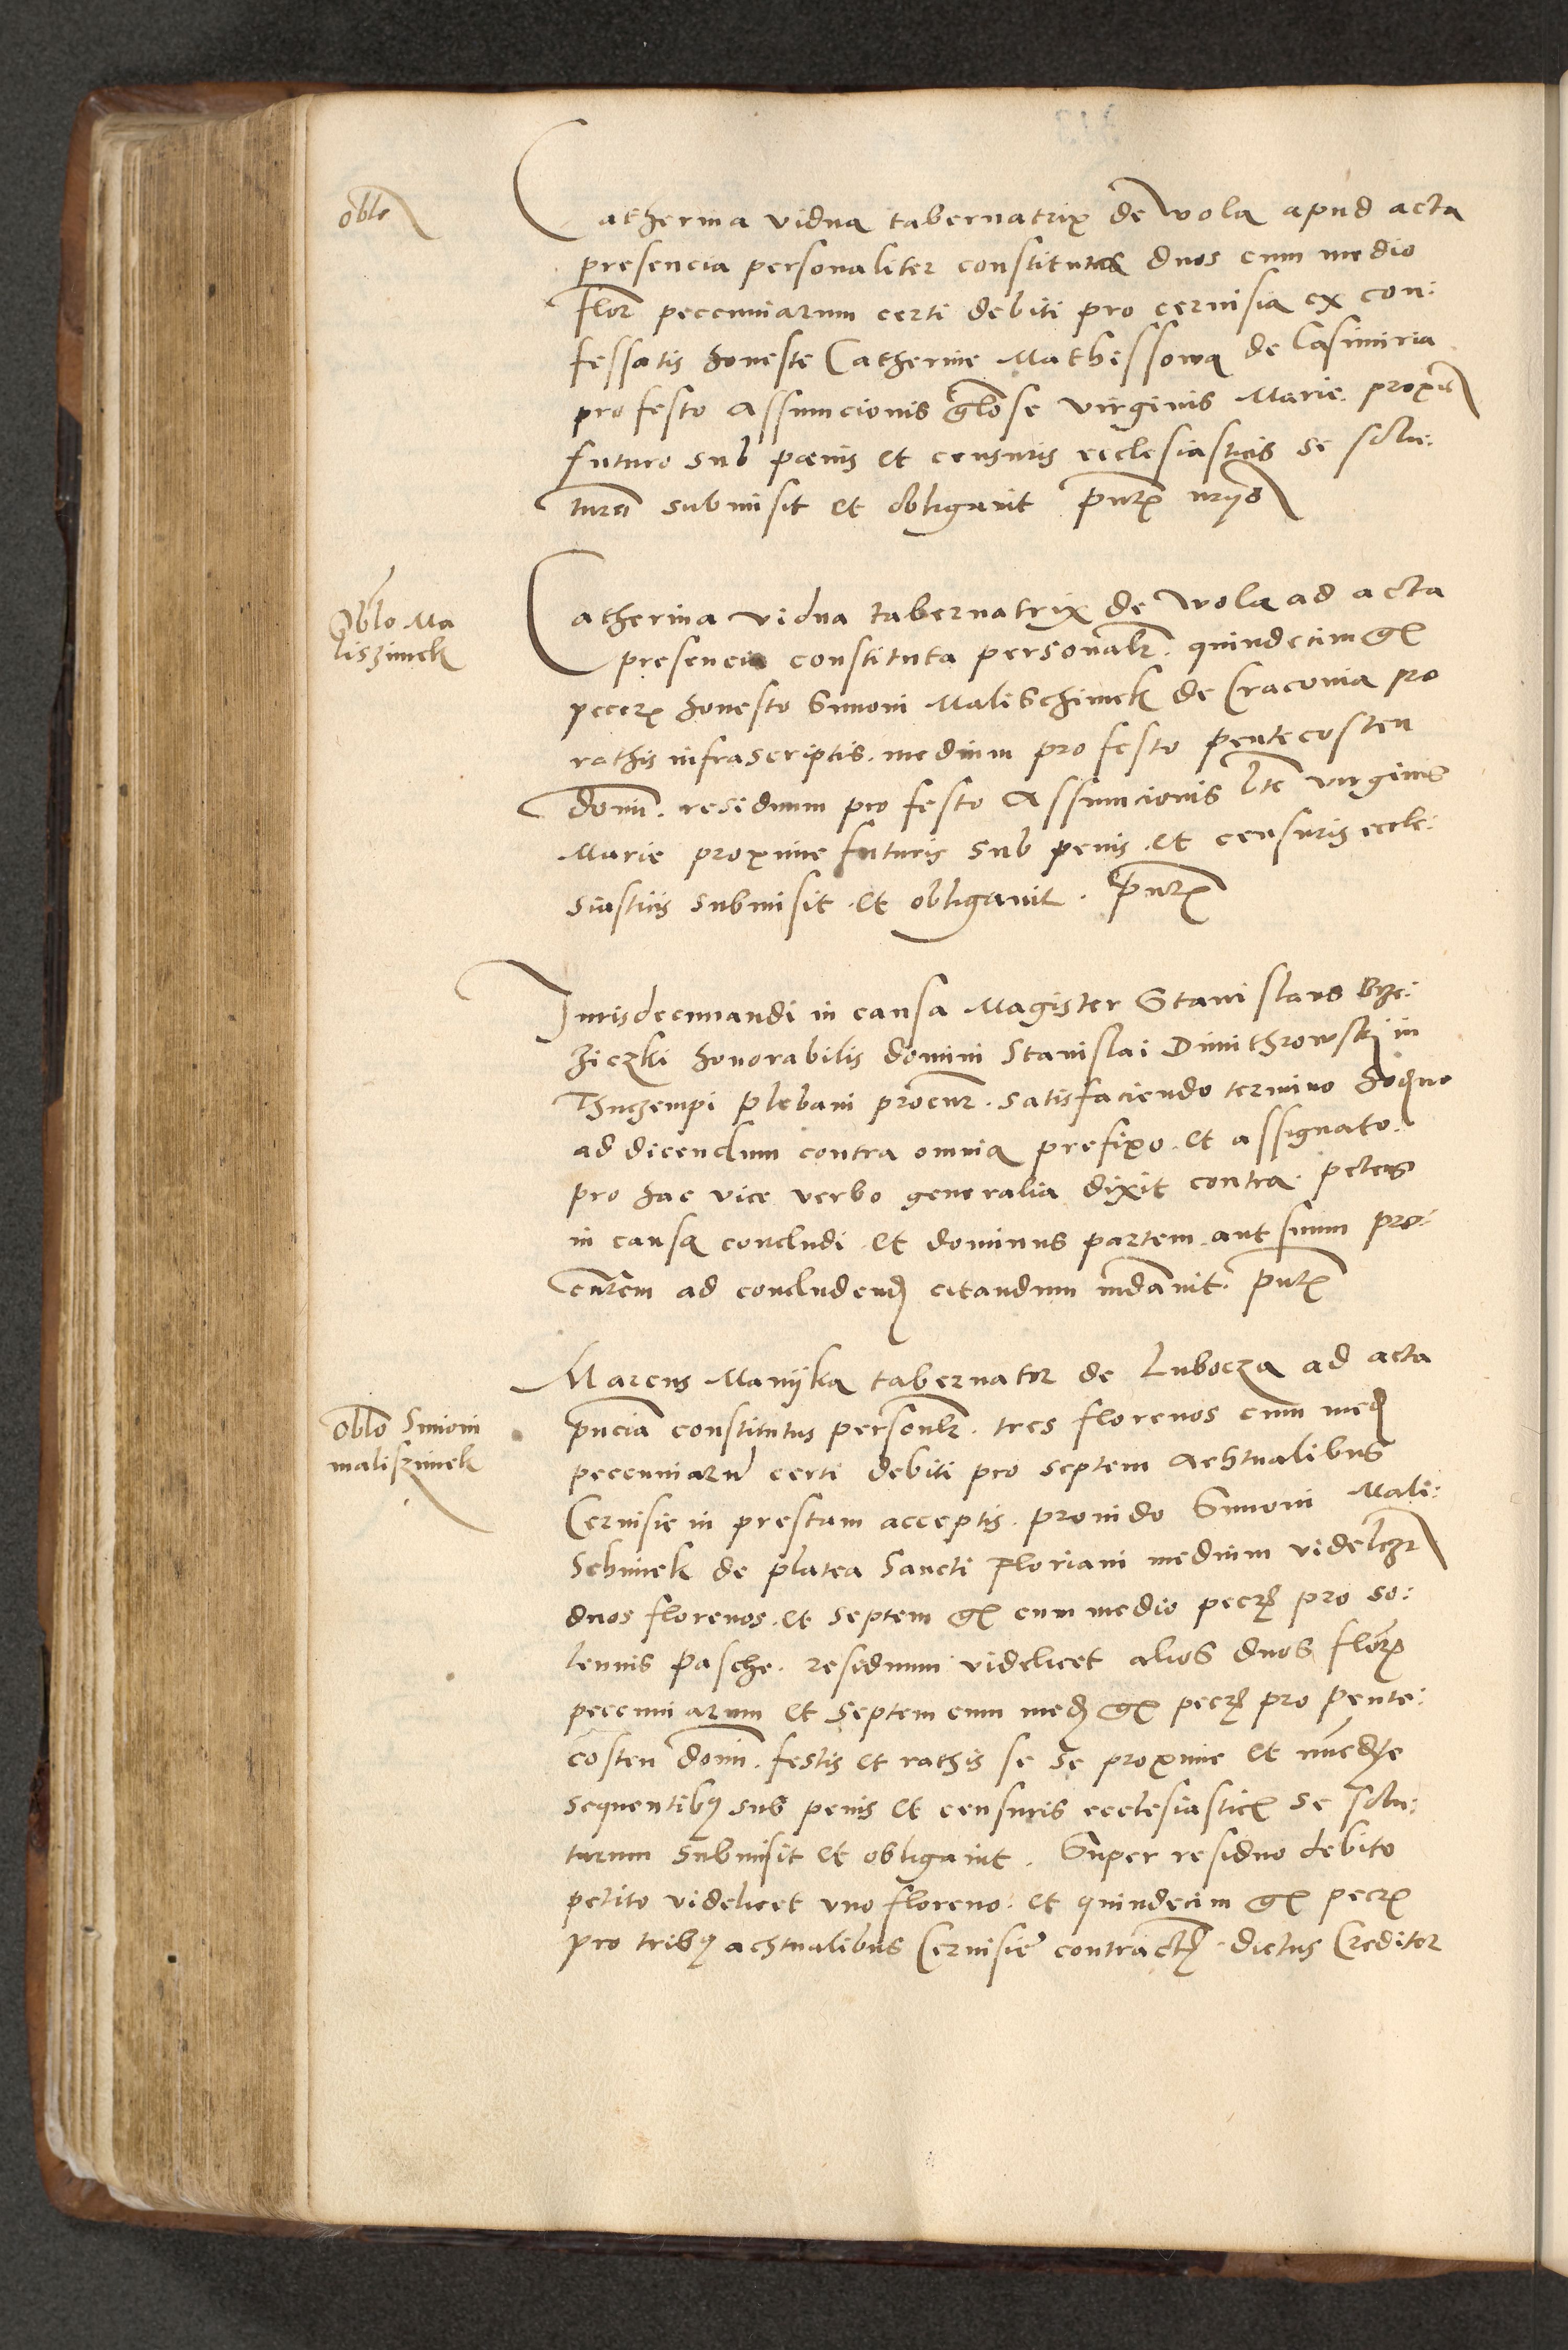 oblo
Catherina vidua tabernatrix de wola apud acta
presencia personaliter constituta duos cum medio
flor pecuniarum certi debiti pro cervisia ex con:
fessatis honeste Catherine Mathissowa de Casimiria
pro festo Assumcionis glose virginis Marie proxi
futuro sub pœnis et censuris ecclesiasticis se solu:
turã submisit et obligavit pntz
Oblo Ma
liszimek
Catherina vidua tabernatrix de wola ad acta
presencia constituta personalr. quindecim gr
peccrz honesto Simoni Malischimek de Craconia pro
rathis infrascriptis. medium pro festo pentecosten
domi. residuum pro festo Assumcionis bte virginis
Marie proxime futuris sub penis et censuris eccle:
siasticis submisit et obligavit. pntz
Juris decumandi in causa Magister Stanislaus Brze:
ziczki honorabilis domini Stanislai Dimithrowski in
Thuczempi plebani procur. satisfaciendo termino hoque
ad dicendum contra omnia prefixo et assignato.
pro hac vice verbo generalia dixit contra petens
in causa concludi et dominus partem aut suum pro:
curem ad concludend citandum mdavit. pntz
Marcus Manijka tabernator de Lubocza ad acta
oblo Simoni
maliszimek
pncia constitutus personlr. tres florenos cum med
pecuniarũ certi debiti pro septem achtualibus
Cervisie in prestam acceptis. provido Simoni Mali:
schimek de platea Sancti Floriani medium videlczt
duos florenos et septem gr cum medio peccr pro so:
lennis pasche. residuum videlicet alios duos florz
pecuniarum et septem cum med gr peccr pro pente:
costen domi. festis et rathis se se proxime et immediate
sequentibus sub penis et censuris ecclesiasticz se solu:
turum submisit et obligavit. Super residuo debito
petito videlicet uno floreno et quindecim gr peccr
pro tribus achtualibus Cervisie contract dictus Creditor